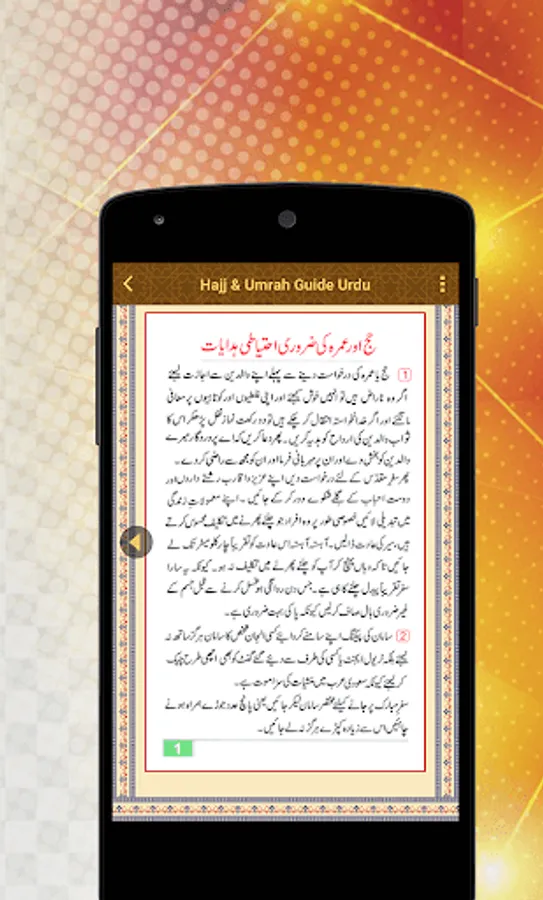 Hajj & Umrah Guide Urdu
حج اور عمرہ کی ضروری احتیاطی ہدایات
1 حج یا عمرہ کی درخواست دینے سے پہلے اپنے والدین سے اجازت لیجئے
اگر وہ ناراض ہیں تو انہیں خوش کیجئے اور اپنی غلطیوں اور کوتاہیوں پر معافی
مانگئے اور اگر خدانخواستہ انتقال کر چکے ہیں تو دو رکعت نماز نفل پڑھکر اس کا
ثواب والدین کی ارواح کو ہدیہ کریں۔ پھر دعا کریں کہ اے پروردگار میرے
والدین کو بخش دے اور ان پر مہربانی فرما اور ان کو مجھ سے راضی کر دے۔
پھر سفر مقدس کے لئے درخواست دیں اپنے عزیز و اقارب رشتے داروں اور
دوست احباب کے گلے شکوے دور کر کے جائیں۔ اپنے معمولات زندگی
میں تبدیلی لائیں خصوصی طور پر وہ افراد جو چلنے پھرنے میں تکلیف محسوس کرتے
ہیں، سیر کی عادت ڈالیں۔ آہستہ آہستہ اس عادت کو تقریباً چار کلو میٹر تک لے
جائیں تاکہ وہاں پہنچ کر آپ کو چلنے پھرنے میں تکلیف نہ ہو۔ کیونکہ یہ سارا
سفر تقریباً پیدل چلنے کا ہی ہے۔ جس دن روانگی ہو غسل کرنے سے قبل جسم کے
غیر ضروری بال صاف کر لیں کیونکہ پاکی بہت ضروری ہے۔
2 سامان کی پیکنگ اپنے سامنے کروائیے کسی انجان شخص کا سامان ہرگز ساتھ نہ
لیجئے بلکہ ٹریول ایجنٹ یا کسی کی طرف سے دیئے گئے گفٹ کو بھی اچھی طرح چیک
کر لیجئے کیونکہ سعودی عرب میں منشیات کی سزا موت ہے۔
سفر مبارک پر جانے کیلئے مختصر سامان لیکر جائیں یعنی پانچ عدد جوڑے ہمراہ ہونے
چاہئیں اس سے زیادہ کپڑے ہرگز نہ لے جائیں۔
1